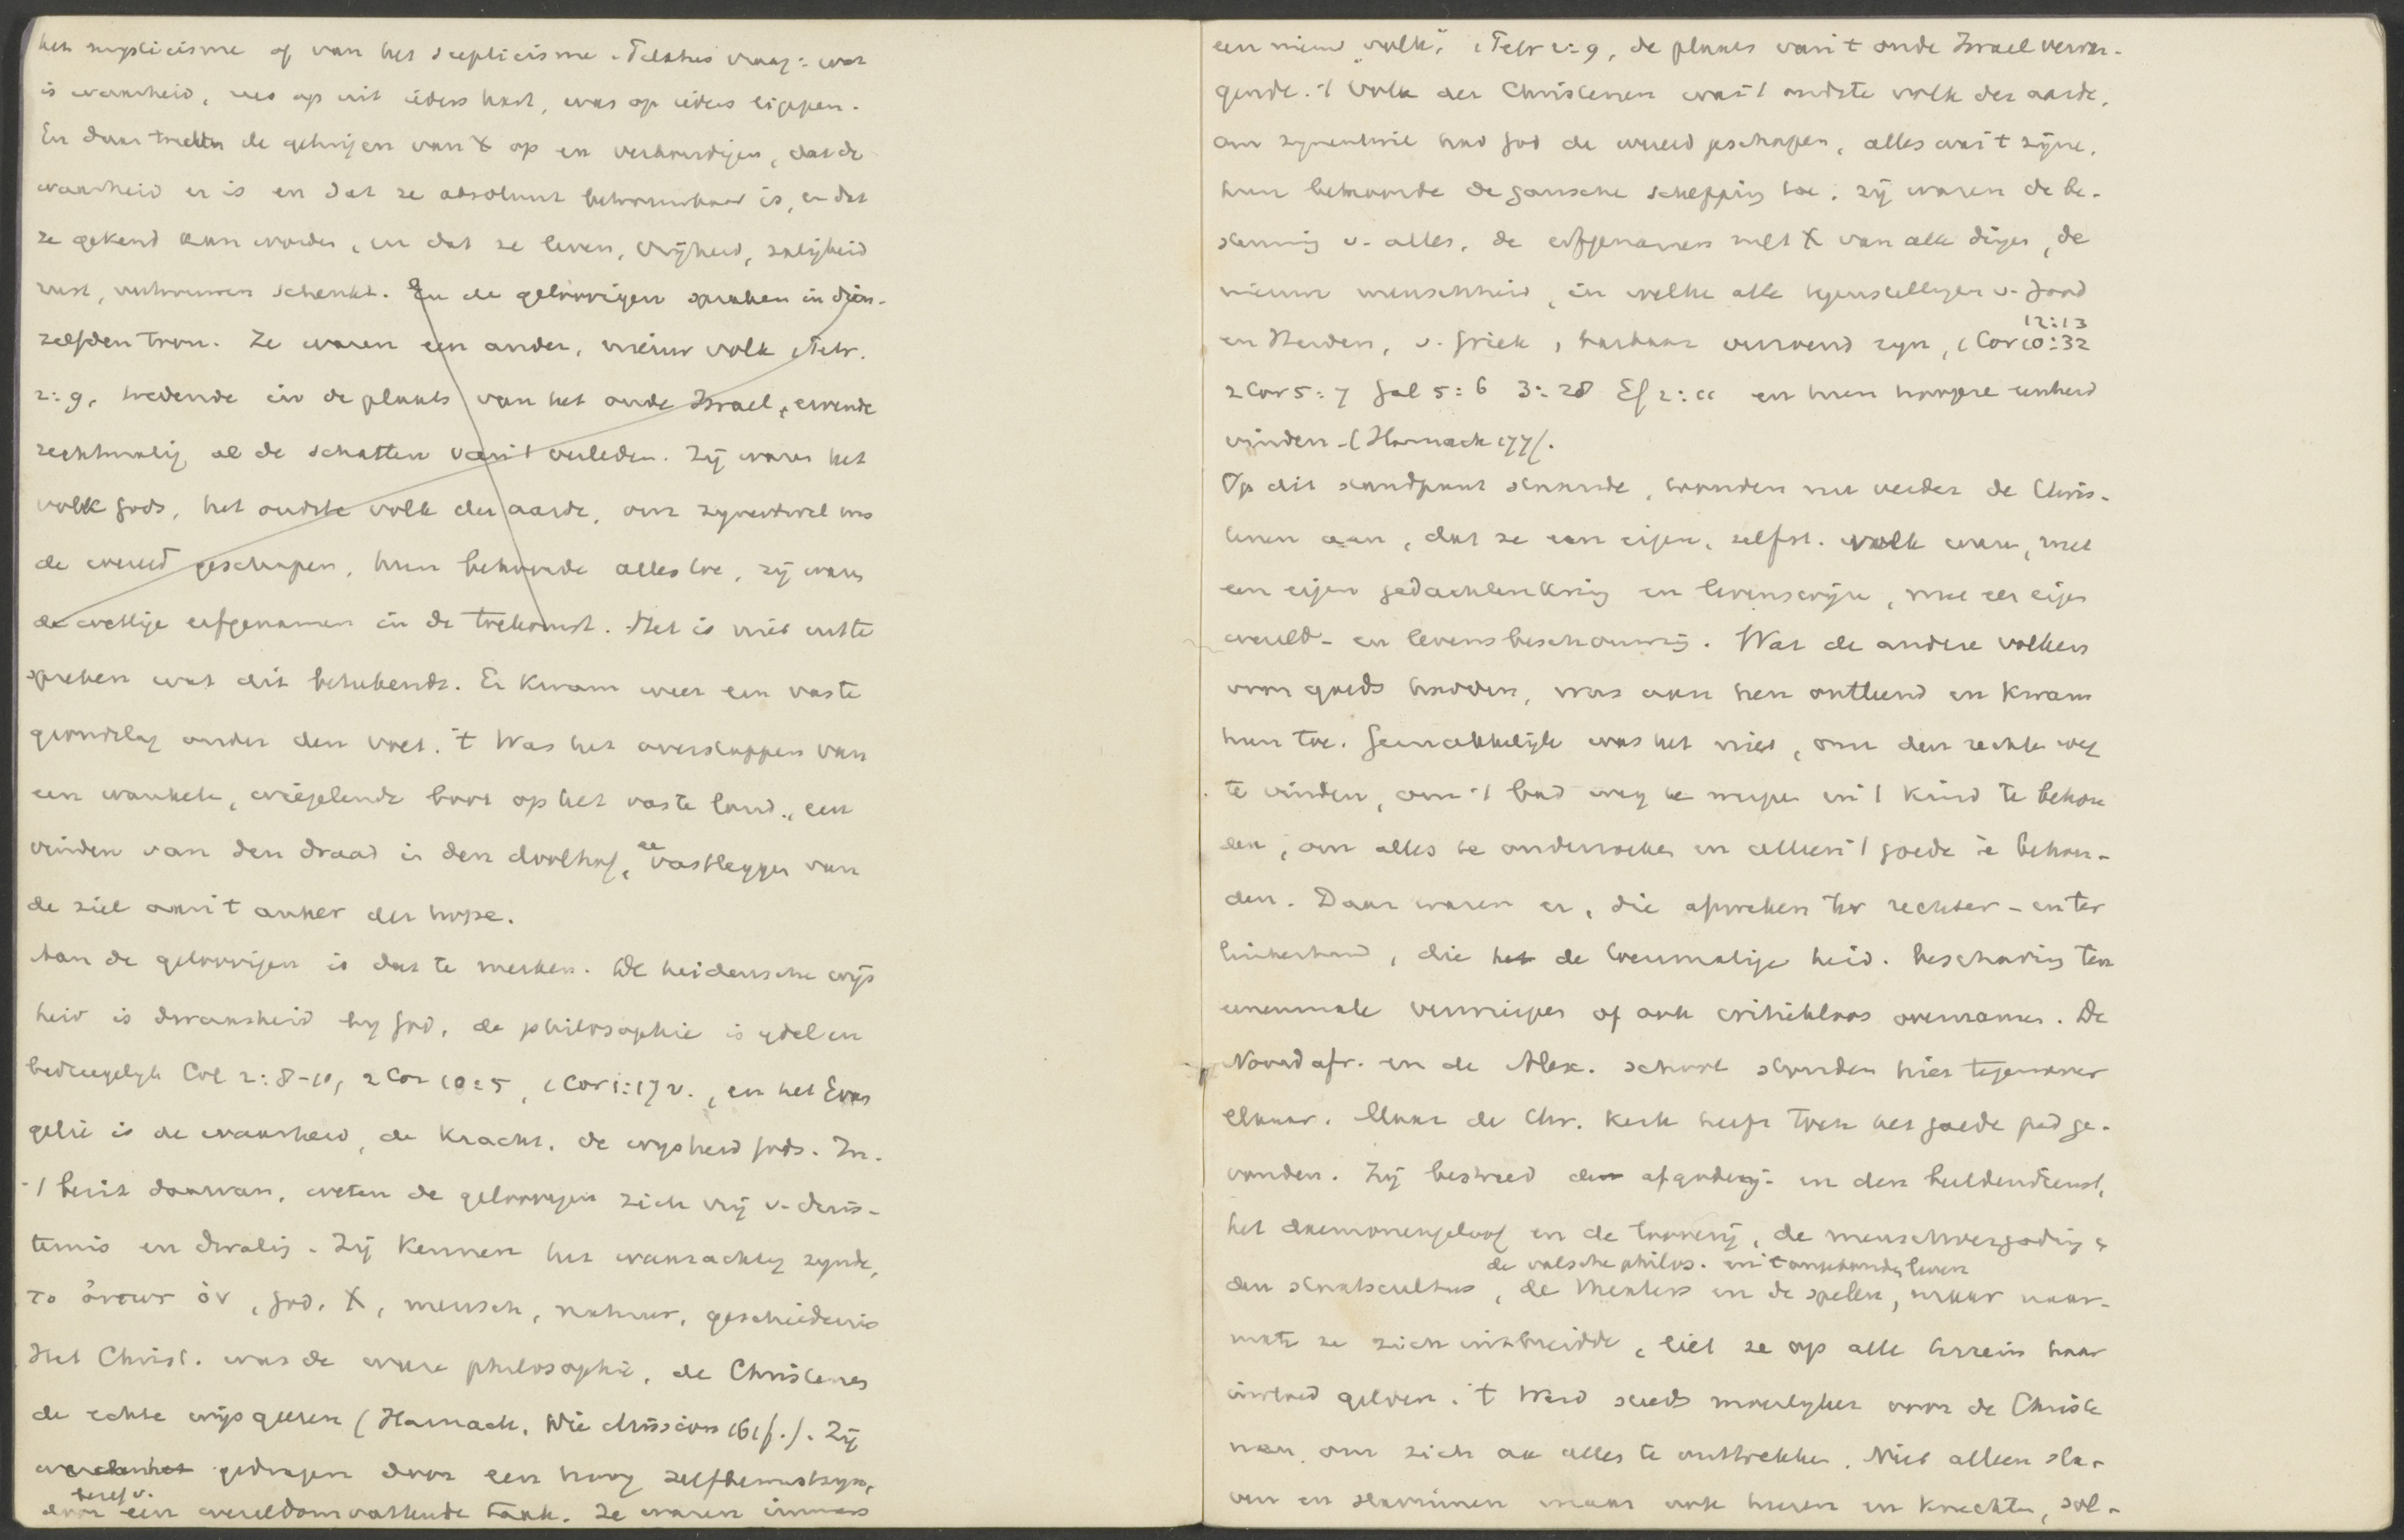 het mysticisme of van het scepticisme. Pilatus vraag: wat
is waarheid, was op uit ieders hart, was op ieders lippen.
En daar traden de getuigen van X op en verkondigen, dat de
waarheid er is en dat ze absoluut betrouwbaar is, en dat
ze gekend kan worden, en dat ze leven, vrijheid, zaligheid
rust, vertrouwen schenkt. En de geloovigen spraken in dien-
zelfden toon. Ze waren een ander, nieuw volk 1 Petr.
2:9, tredende in de plaats van het oude Israel, ervende
rechtmatig al de schatten van 't verleden. Zij waren het
volk Gods, het oudste volk der aarde, om zynentwil was
de wereld geschapen, hun behoorde alles toe, zij waren
de wettige erfgenamen in de toekomst. Het is niet uit te
spreken wat dit beteekende. Er kwam weer een vaste
grondslag onder den voet. 't Was het overstappen van
een wankele, wiegelende boot op het vaste land, een
vinden van den draad in den doolhof, een vastleggen van
de ziel aan 't anker der hope.
Aan de geloovigen is dat te merken. De heidensche wijs
heid is dwaasheid by God, de philosophie is ydel en
bedriegelyk Col 2:8-10, 2 Cor 10:5, 1 Cor 1:17 v., en het Evan
gelie is de waarheid, de kracht, de wysheid Gods. In
't bezit daarvan, weten de geloovigen zich vrij v. duis-
ternis en dwaling. Zij kennen het waarachtig zynde,
το ὄντως ὄν, God, X, mensch, natuur, geschiedenis
Het Christ. was de ware philosophie, de Christenen
de echte wijsgeeren (Harnack, Die Mission 161 f.). Zij
werden gedragen door een hoog zelfbewustzyn,
door besef v. een wereldomvattende taak. Ze waren immers
een nieuw "volk", 1 Petr 2:9, de plaats van 't oude Israel vervan-
gende. 't Volk der Christenen was 't oudste volk der aarde,
om zynentwil had God de wereld geschapen, alles was 't zyne,
hun behoorde de gansche schepping toe; zij waren de be-
stemming v. alles, de erfgenamen met X van alle dingen, de
nieuwe menschheid, in welke alle tegenstellingen v. Jood
en Heiden, v. Griek, barbaar verzoend zyn, 1 Cor 10:32 12:13
2 Cor 5:7 Gal 5:6 3:28 Ef 2:11 en hun hoogere eenheid
vinden - (Harnack 177).
Op dit standpunt staande, waren nu verder de Chris-
tenen aan, dat ze een eigen, zelfst. volk waren, met
een eigen gedachtenkring en levenswijze, met een eigen
wereld- en levensbeschouwing. Wat de andere volken
voor goeds hadden, was aan hen ontleend en kwam
hun toe. Gemakkelijk was het niet, om den rechten weg
te vinden, om 't bad weg te werpen en 't kind te behou
den, om alles te onderzoeken en alleen 't goede te behou-
den. Daar waren er, die afweken ter rechter- en ter
linkerhand, die de toenmalige heid. beschaving ten
eenenmale verwierpen of ook critiekloos overnamen. De
Noordafr. en de Alex. school stonden hier tegenover
elkaar. Maar de Chr. Kerk heeft toch het goede pad ge-
vonden. Zij bestreed de afgoderij- en den beeldendienst,
het daemonengeloof en de tooverij, de menschvergoding &
den staatscultus, de valsche philos. en 't onzedelyk leven, de theaters en de spelen, maar naar-
mate ze zich uitbreidde, liet ze op alle terrein haar
invloed gelden. 't Werd steeds moeilyker voor de Christe
nen om zich aan alles te onttrekken. Niet alleen sla-
ven en slavinnen maar ook heeren en knechten, sol-